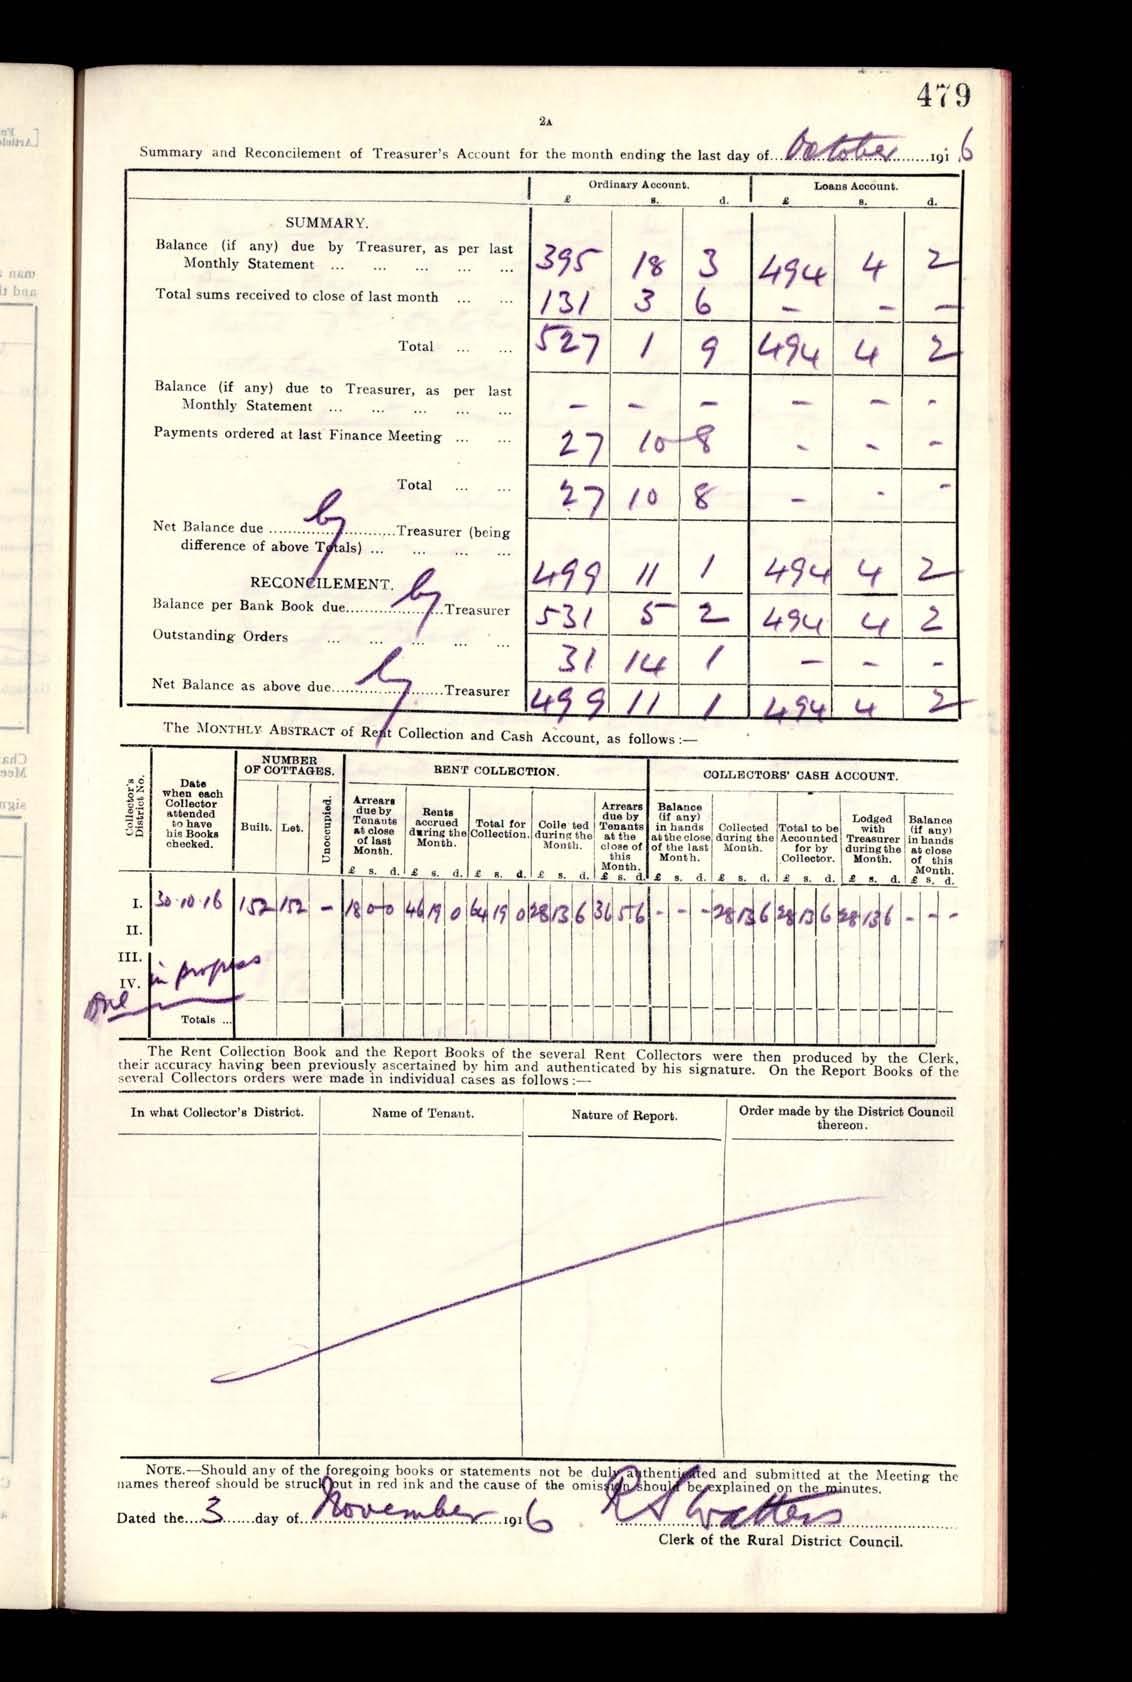 479
2A
Summary and Reconcilement of Treasurer's Account for the month ending the last day of...October...191 6
Ordinary Account. Loans Account.
£ s. d. £ s. d.
SUMMARY.
Balance (if any) due by Treasurer, as per last
Monthly Statement ... ... ... ... ... 395 18 3 494 4 2
Total sums received to close of last month ... ... 131 3 6 – – –
Total ... ... 527 1 9 494 4 2
Balance (if any) due to Treasurer, as per last
Monthly Statement ... ... ... ... ... – – – – – -
Payments ordered at last Finance Meeting ... ... 27 10 8 - - -
Total ... ... 27 10 8 – - -
Net Balance due ...by...Treasurer (being
difference of above Totals) ... ... ... ... 499 11 1 494 4 2
RECONCILEMENT.
Balance per Bank Book due...by...Treasurer 531 5 2 494 4 2
Outstanding Orders ... ... ... ... ... 31 14 1 – – -
Net Balance as above due...by...Treasurer 499 11 1 494 4 2
The MONTHLY ABSTRACT of Rent Collection and Cash Account, as follows :—
Collector's District No.
Date when each Collector attended to have his Books checked.
NUMBER OF COTTAGES.
Built. Let. Unoccupied.
RENT COLLECTION.
Arrears due by Tenants at close of last Month.
Rents accrued during the Month.
Total for Collection.
Colle ted during the Month.
Arrears due by Tenants at the close of this Month.
COLLECTORS' CASH ACCOUNT.
Balance (if any) in hands at the close of the last Month.
Collected during the Month.
Total to be Accounted for by Collector.
Lodged with Treasurer during the Month.
Balance (if any) in hands at close of this Month.
£ s. d. £ s. d. £ s. d. £ s. d. £ s. d. £ s. d. £ s. d. £ s. d. £ s. d. £ s. d.
I. 30·10·16 152 152 – 18 0 0 46 19 0 64 19 0 28 13 6 36 5 6 - - - 28 13 6 28 13 6 28 13 6 - - -
II.
III.
IV. in progress
Totals ...
The Rent Collection Book and the Report Books of the several Rent Collectors were then produced by the Clerk,
their accuracy having been previously ascertained by him and authenticated by his signature. On the Report Books of the
several Collectors orders were made in individual cases as follows :—
In what Collector's District. Name of Tenant. Nature of Report. Order made by the District Council thereon.
NOTE.—Should any of the foregoing books or statements not be duly authenticated and submitted at the Meeting the
names thereof should be struck out in red ink and the cause of the omission should be explained on the minutes.
Dated the...3...day of...November...191 6 R S Watters
Clerk of the Rural District Council.